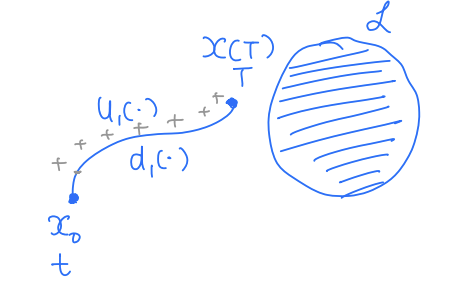 L
x(T)
T
u₁(·)
d₁(·)
x₀
t